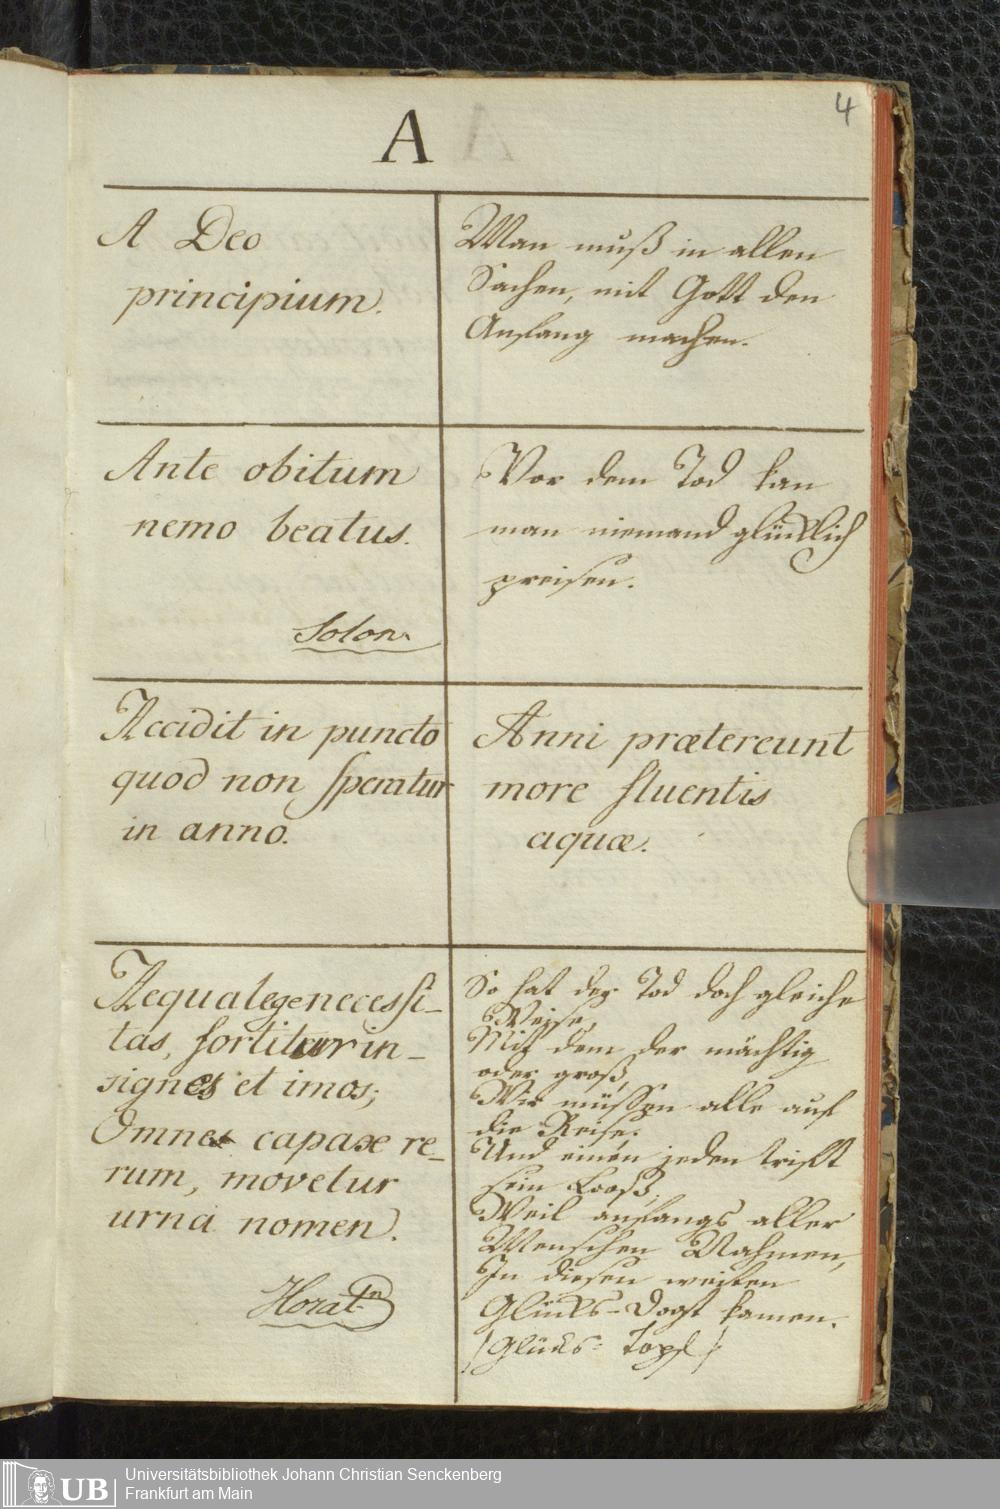 4
A
A Deo
principium.
Man muß in allen
Sachen, mit Gott den
Anfang machen.
Ante obitum
nemo beatus.
Solon.
Vor dem Tod kan
man niemand glücklich
preisen.
Accidit in puncto
quod non speratur
in anno.
Anni prætereunt
more fluentis
aquæ.
Aequa lege necessi-
tas, sortitur in-
signes et imos;
Omne capax re-
rum, movetur
urna nomen.
Horat
So hat der Tod doch gleiche
Weise,
Mit dem der mächtig
oder groß,
Wir müssen alle auf
die Reise,
Und einen jeden trifft
sein Looß,
Weil anfangs aller
Menschen Nahmen,
In diesen weiten
Glücks- kamen.
(Glücks- Topf)
Universitätsbibliothek Johann Christian Senckenberg
Frankfurt am Main
UB